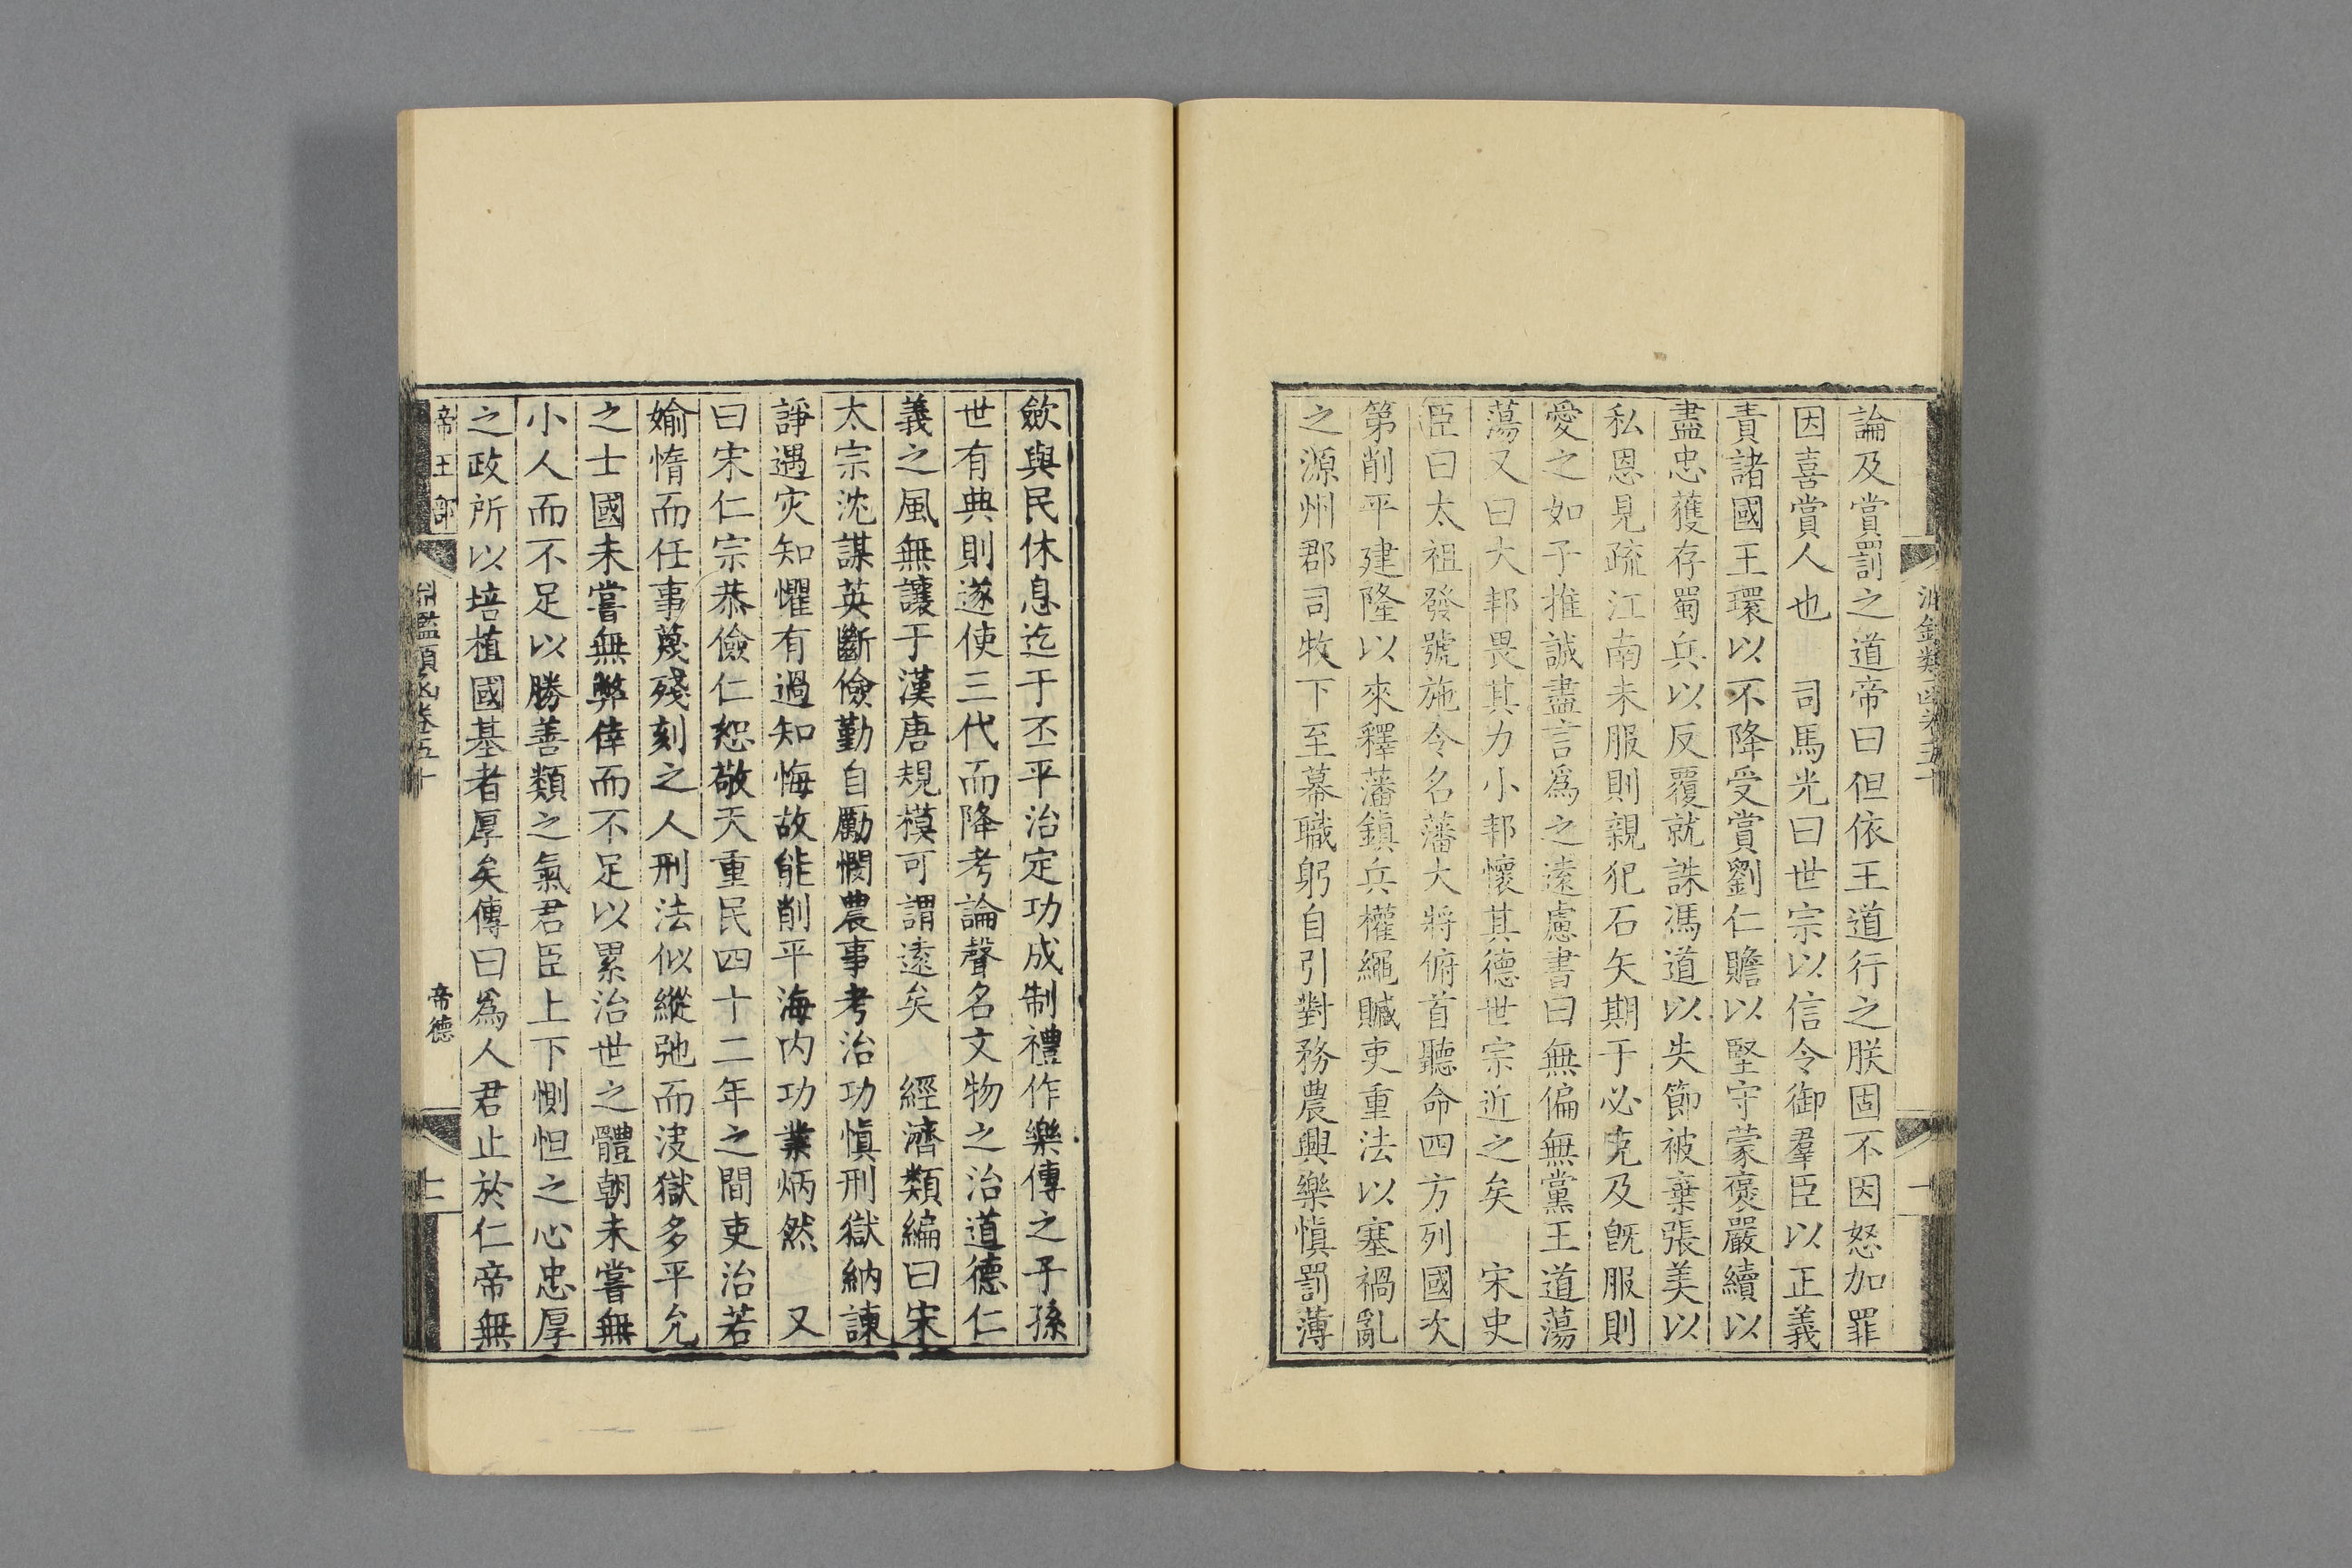 論及賞罰之道帝曰但依王道行之朕固不因怒加罪
因喜賞人也　司馬光曰世宗以信令御羣臣以正義
責諸國王環以不降受賞劉仁贍以堅守蒙褒嚴續以
盡忠獲存蜀兵以反覆就誅馮道以失節被棄張美以
私恩見疏江南未服則親犯石矢期于必克及旣服則
愛之如子推誠盡言爲之遠慮書曰無偏無黨王道蕩
蕩又曰大邦畏其力小邦懷其德世宗近之矣　宋史
臣曰太祖發號施令名藩大將俯首聽命四方列國次
第削平建隆以來釋藩鎮兵權繩贓吏重法以塞禍亂
之源州郡司牧下至幕職躬自引對務農興樂愼罰薄
歛與民休息迄于丕平治定功成制禮作樂傳之子孫
世有典則遂使三代而降考論聲名文物之治道德仁
義之風無讓于漢唐規模可謂遠矣　經濟類編曰宋
太宗沈謀英斷儉勤自勵憫農事考治功愼刑獄納諫
諍遇灾知懼有過知悔故能削平海内功業炳然　又
曰宋仁宗恭儉仁恕敬天重民四十二年之間吏治若
媮惰而任事蔑殘刻之人刑法似縱弛而决獄多平允
之士國未嘗無弊倖而不足以累治世之體朝未嘗無
小人而不足以勝善類之氣君臣上下惻怛之心忠厚
之政所以培植國基者厚矣傳曰爲人君止於仁帝無
帝王部
淵鑑類函卷五十
帝德